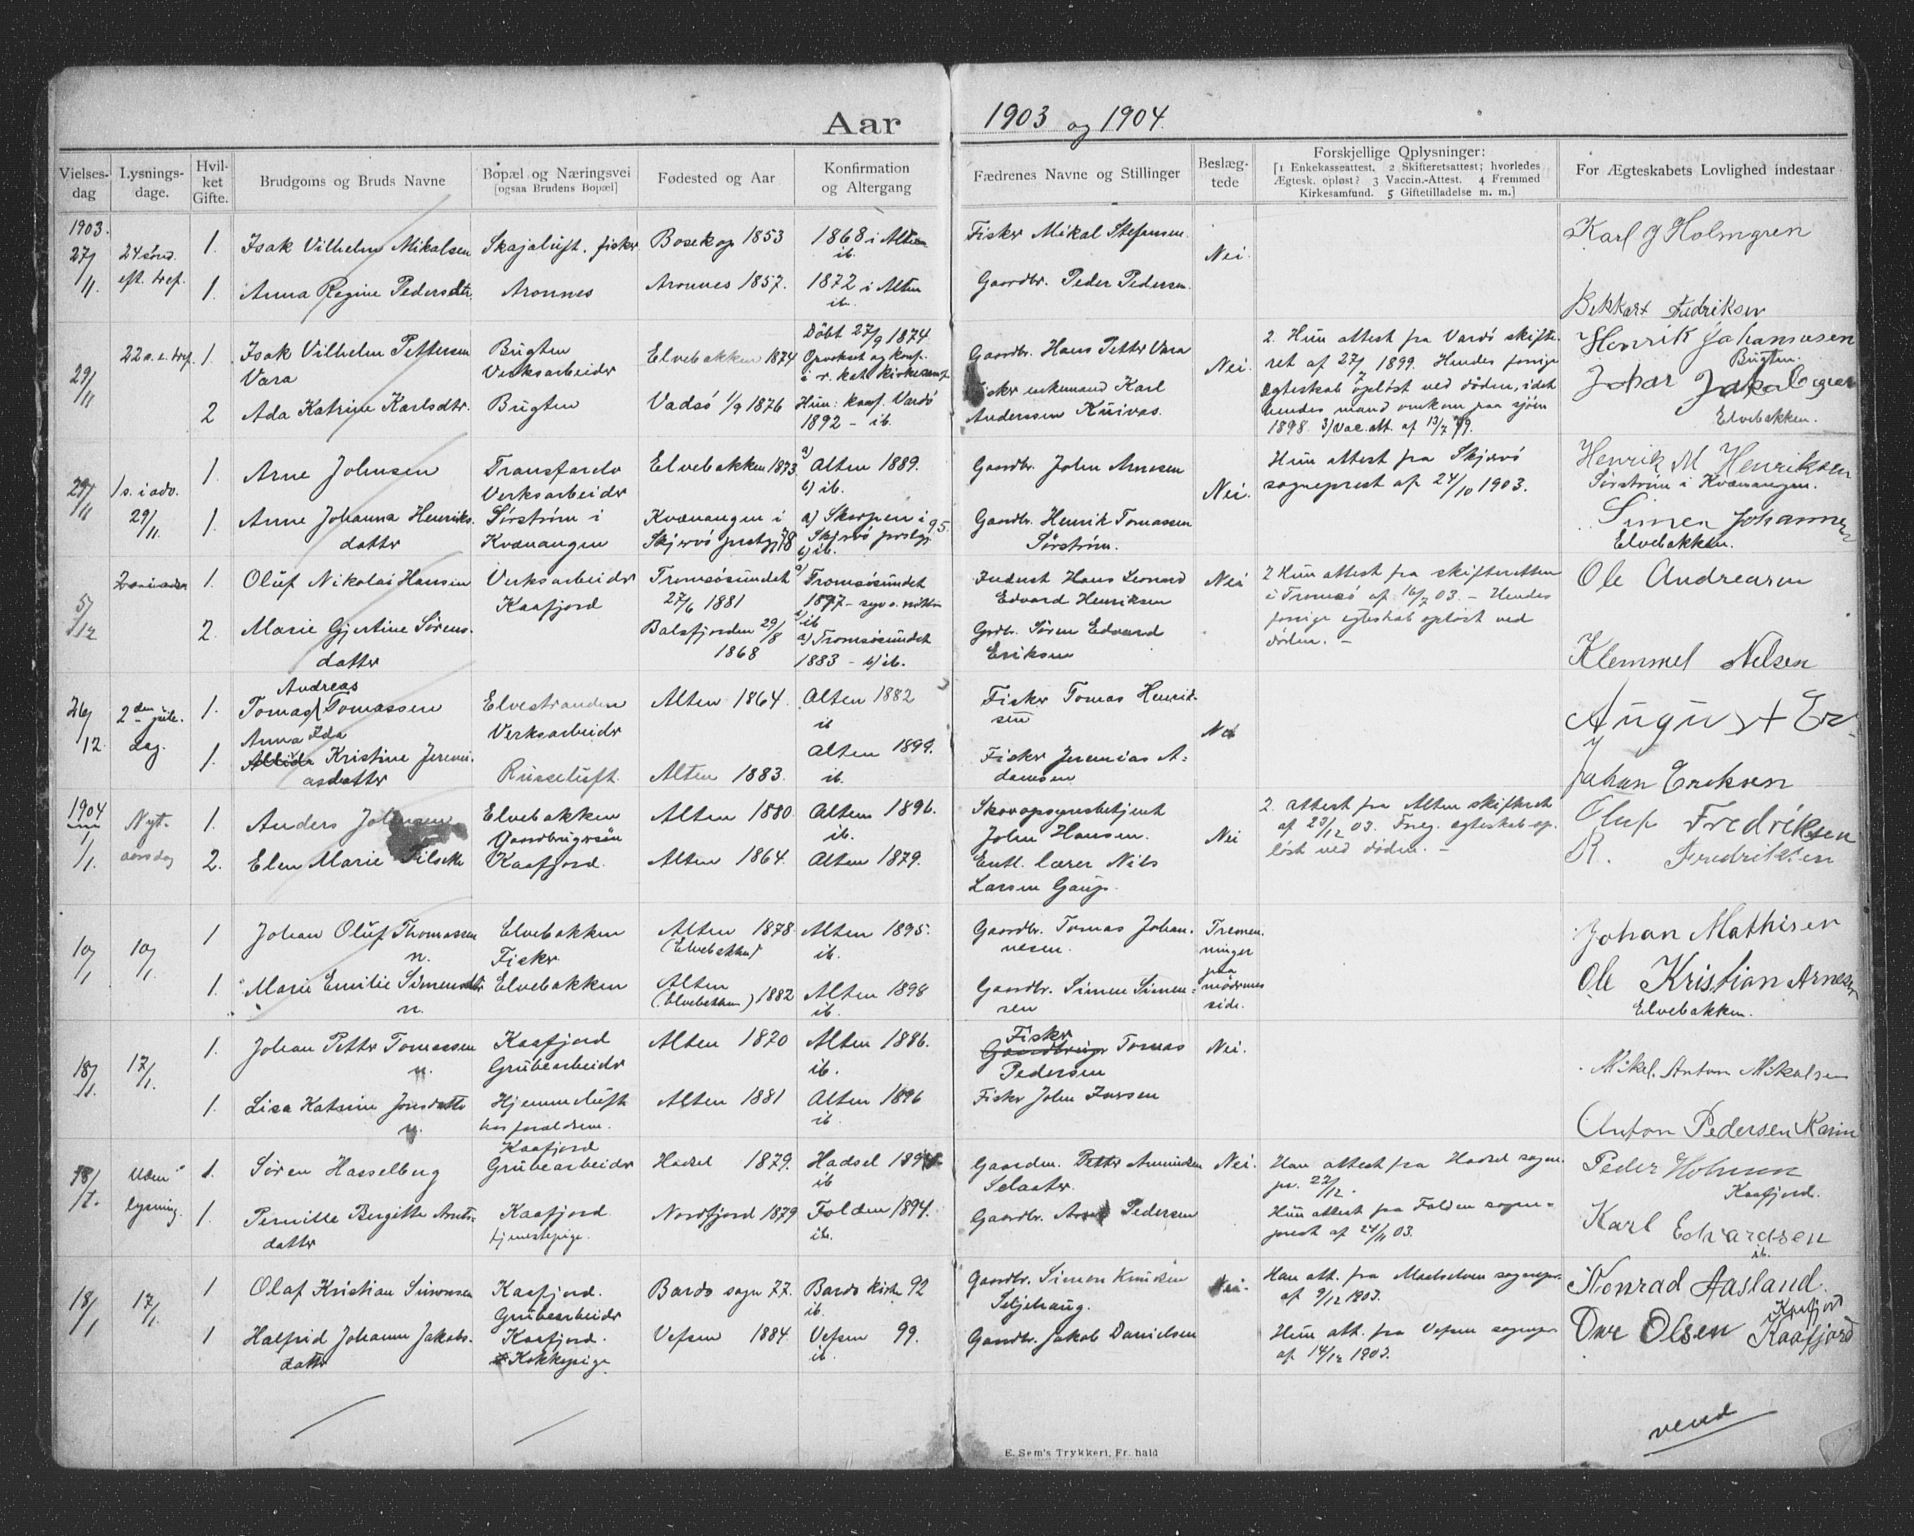 Aar 1903 og 1904
Vielses-
dag
Lysnings-
dage.
Hvil-
ket
Gifte.
Brudgoms og Bruds Navne
Bopæl og Næringsvei
[ogsaa Brudens Bopæl]
Fødested og Aar
Konfirmation
og Altergang
Fædrenes Navne og Stillinger
Beslæg-
tede
Forskjellige Oplysninger:
[1 Enkekasseattest. 2 Skifteretsattest; hvorledes
Ægtesk. opløst? 3 Vaccin.-Attest. 4 Fremmed
Kirkesamfund. 5 Giftetilladelse m. m.]
For Ægteskabets Lovlighed indestaar
1903.
27/11 24 sønd. 1. Isak Vilhelm Mikalsen Skajaluft. fisker Bosekop 1853 1868 i Alten Fisker Mikal Stefensen. Nei. Karl J Holmgren
eft. tref. ib.
1. Anna Regine Pedersdtr. Aronnes Aronnes 1857. 1872 i Alten Gaardbr. Peder Pedersen.
ib. Bekkart Fredriksen
29/11 22 s. e. tref. 1. Isak Vilhelm Pettersen Bugten Elvebakken 1874 Döbt 27/9 1874 Gaardbr. Hans Petter Vara Nei. 2. Hun attest fra Vardö skifte- Henrik Johannesen
Vara Verksarbeider Opvokset og konf. ret af 27/7 1899. Hendes forrige Bugten.
i r. kat kirkesamf. Fisker enkemand Karl egteskab opløst ved døden, idet Johan
2 Ada Katrine Karlsdtr. Bugten Vadsö 1/9 1876 Hun: konf. Vardö Anderssen Kuivas. hendes mand omkom paa sjöen Elvebakken.
1892 - ib. 1898. 3) Vac. att. af 13/7 99.
29/11 1 s. i adv. 1. Arne Johnsen Transfardv Elvebakken 1873 a) Alten 1889. Gaardbr. John Arnesen Nei. Hun attest fra Skjervö Henrik M Henriksen
29/11 Verksarbeider b) ib. sogneprest af 24/10 1903. Sørstrøm i Kvænangen.
1. Anne Johanna Henriks- Sörström i Kvænangen i a) Skorpen i 95. Gaardbr. Henrik Tomassen Simen Johannes
datter Kvænangen Skjervö prestgj. 78 Skjervö prstgj. Sörström. Elvebakken.
b) ib.
5/12 2 s. i adv. 1. Oluf Nikolai Hansen Verksarbeider Tromsösundet a) Tromsösundet Inderst Hans Leonard Nei 2 Hun attest fra skifteretten Ole Andreasen
Kaafjord 27/6 1881 1897 Edvard Henriksen i Tromsö af 16/7 03. - Hendes
b) ib forrige egteskab opløst ved
2. Marie Gjertine Sörens- Balsfjorden 29/8 a) Tromsösundet Grdbr. Sören Edvard døden. -
datter 1868 1883 - b) ib. Eriksen Klemmel Nilsen
26/12 2den jule- 1. Tomas Andreas Tomassen Elvestranden Alten 1864. Alten 1882 Fisker Tomas Henrik- Nei August Er
dag. Verksarbeider ib sen
1. Anna Ida Kristine Jeremi- Alten 1899. Fisker Jeremias A-
asdatter Russeluft. Alten 1883. ib. damsen Johan Eriksen
1904
1/1 Nyt- 1. Anders Johnsen Elvebakken Alten 1880 Alten 1896. Skovopsynsbetjent Nei 2. attest fra Alten skifteret Oluf Fredriksen
aarsdag Gaardbrugersøn ib. John Hansen. af 23/12 03. Foreg. egteskab op-
2. Elen Marie Nilsdtr Kaafjord. Alten 1864. Alten 1879. Entl. lærer Nils løst ved døden. - R. Fredriksen
Larsen Gaup.
10/1 10/1 1 Johan Oluf Thomassen Elvebakken Alten 1878 Alten 1895. Gaardbr. Tomas Johan- Tremen- Johan Mathisen
n. Fisker (Elvebakken) ib. nesen. ninger
1. Marie Emilie Simensdtr. Elvebakken Alten Alten 1898 Gaardbr. Simen Simen- paa Ole Kristian Arnesen
n. (Elvebakken) 1882 ib. sen mödrenes Elvebakken.
side.
18/1 17/1. 1. Johan Petter Tomassen Kaafjord Alten 1870 Alten 1886. Fisker Nei.
n. Grubearbeider ib. Gaardbruger Tomas Mikel Anton Mikalsen
Pedersen
1. Lisa Katrine Jonsdatter Hjemmeluft Alten 1881 Alten 1896 Fisker John Ivarsen
n. hos forældrene. ib. Anton Pedersen
18/1. Uden 1. Sören Hasselberg Kaafjord Hadsel 1879. Hadsel 1894 Gaardm. Petter Nei. Han attest fra Hadsel sogne- Peder Holmen
lysning. Grubearbeider ib Selaater. pr. 22/12. Kaafjord.
1. Pernitte Bergitte Arnts- Kaafjord Nordfjord 1879 Folden 1894. Gaardbr. Pedersen Hun attest fra Folden sogne- Karl Edvardsen
datter tjenestepige. ib. prest af 24/11 03. ib.
18/1 17/1. 1 Olaf Kristian Simonsen Kaafjord. Bardo sogn 77. Bardo kirke 92 Gaardbr. Simon Knudsen Nei. Han att. fra Maalselven sognepr. Konrad Aasland.
Grubearbeider ib. Setjehaug. af 9/12 1903. Kaafjord
1 Halfrid Johanne Jakobs- Kaafjord. Vefsen 1884. Vefsen 99. Gaardbr. Jakob Danielsen Hun att. fra Vefsen sognepr. Ole Olsen Kaafjord
datter Kokkepige ib. af 14/12 1903.
vend
E. Sem's Trykkeri, Fr.hald